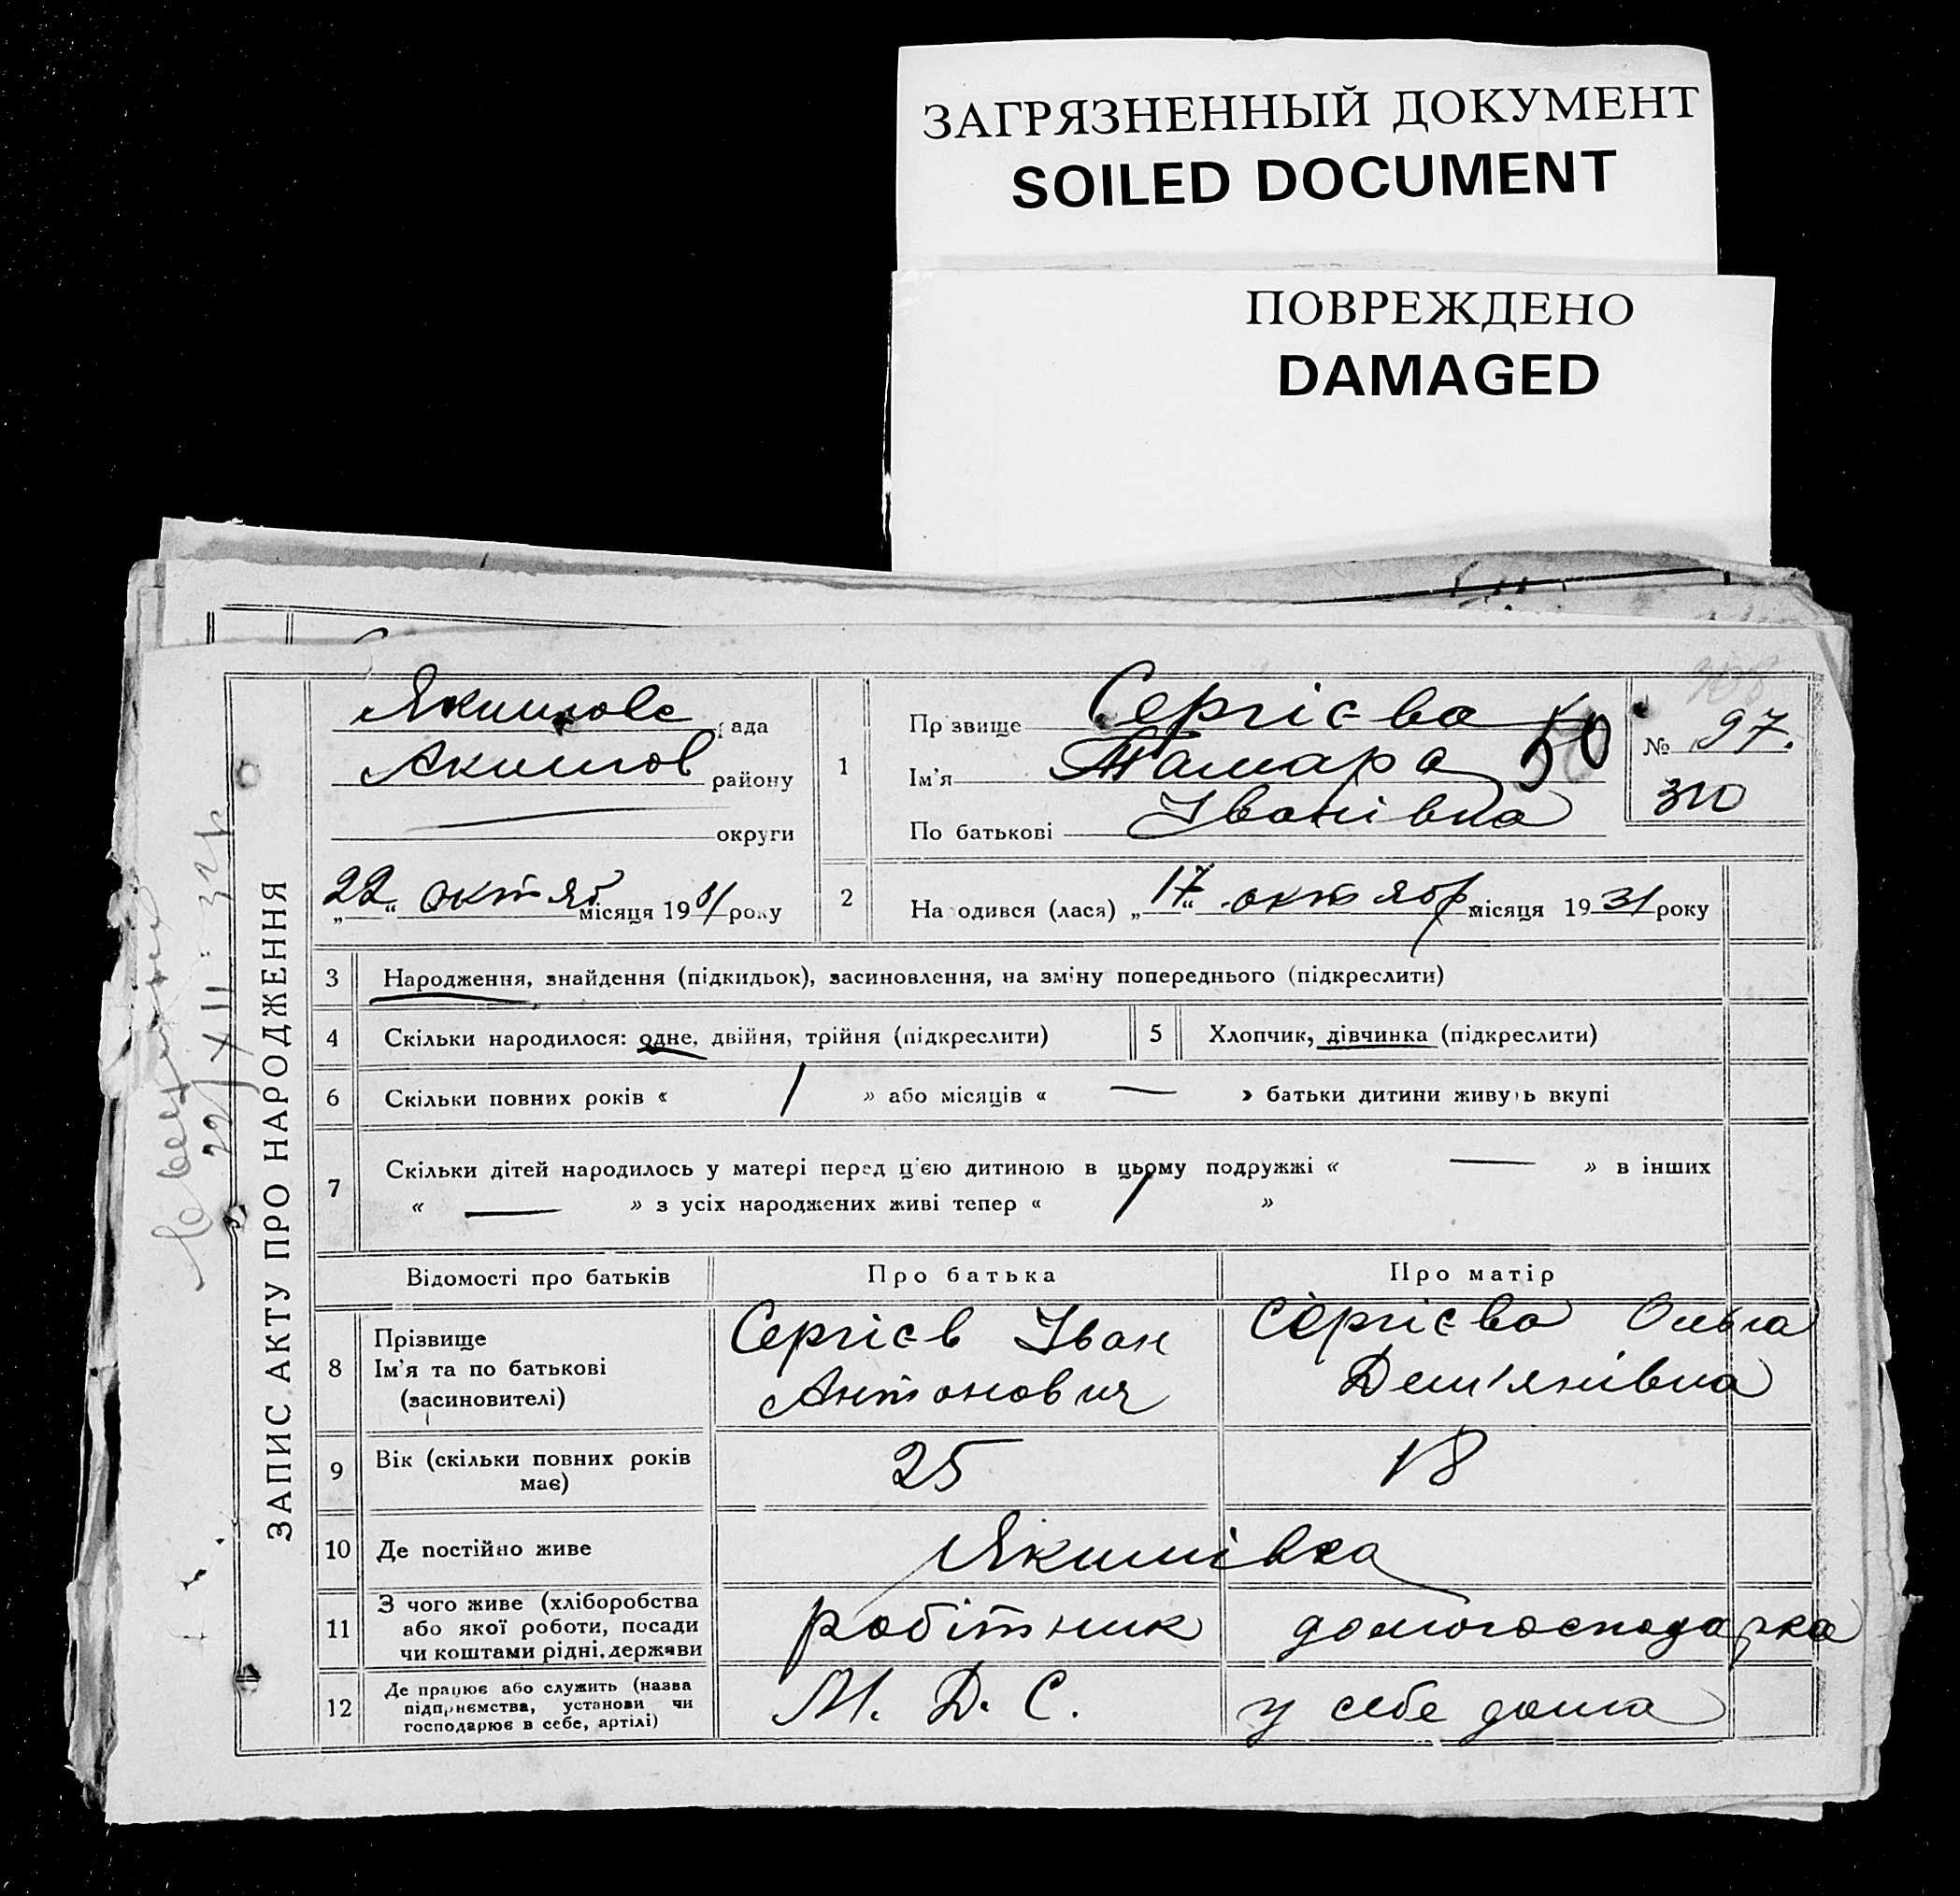 ЗАГРЯЗНЕННЫЙ ДОКУМЕНТ
SOILED DOCUMENT
ПОВРЕЖДЕНО
DAMAGED
ЗАПИС АКТУ ПРО НАРОДЖЕННЯ
22/XII
Якимове рада
Акимов району
округи
„22“ октяб місяця 1931 року
1
Прізвище Сергієва
Ім'я Тамара 50
По батькові Іванівна
№ 97.
310
2
Народився (лася) „17“ октябр місяця 1931 року
3 Народження, знайдення (підкидьок), засиновлення, на зміну попереднього (підкреслити)
4 Скільки народилося: одне, двійня, трійня (підкреслити)
5 Хлопчик, дівчинка (підкреслити)
6 Скільки повних років « 1 » або місяців « — » батьки дитини живуть вкупі
7 Скільки дітей народилось у матері перед ц'єю дитиною в цьому подружжі « — » в інших
« — » з усіх народжених живі тепер « 1 »
Відомості про батьків Про батька Про матір
8 Прізвище
Ім'я та по батькові
(засиновителі)
Сергієв Іван
Антонович
Сергієва Ольга
Дем'янівна
9 Вік (скільки повних років
має)
25 18
10 Де постійно живе Якимівка
11 З чого живе (хліборобства
або якої роботи, посади
чи коштами рідні, держави
робітник домогосподарка
12 Де працює або служить (назва
підприємства, установи чи
господарює в себе, артілі)
М. Д. С. у себе дома